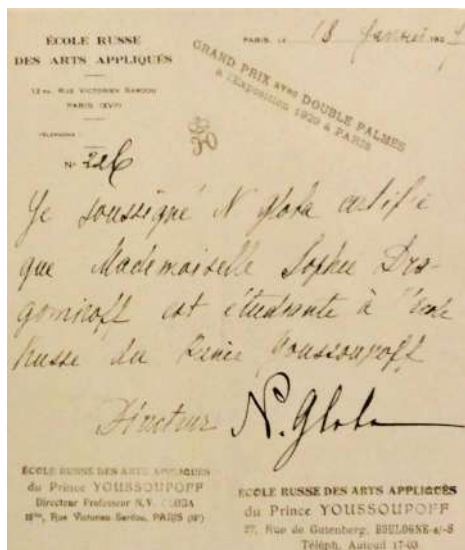 ÉCOLE RUSSE
DES ARTS APPLIQUÉS
PARIS, LE 18 Janvier 192
12 bis, RUE VICTORIEN SARDOU
PARIS (XVI)
GRAND PRIX avec DOUBLE PALMES
à l'Exposition 1929 à PARIS
TÉLÉPHONE :
N° 226
Je soussigné N Globa certifie
que Mademoiselle Sophie Dra-
gomiroff est étudiante à l'école
Russe du Prince Youssoupoff
Directeur N. Globa
ÉCOLE RUSSE DES ARTS APPLIQUÉS
du Prince YOUSSOUPOFF
Directeur Professeur N.V. GLOBA
Rue Victorien Sardou, PARIS (16°)
ÉCOLE RUSSE DES ARTS APPLIQUÉS
du Prince YOUSSOUPOFF
27, Rue de Gutenberg, BOULOGNE s/-S
Téléph. Auteuil 17-03